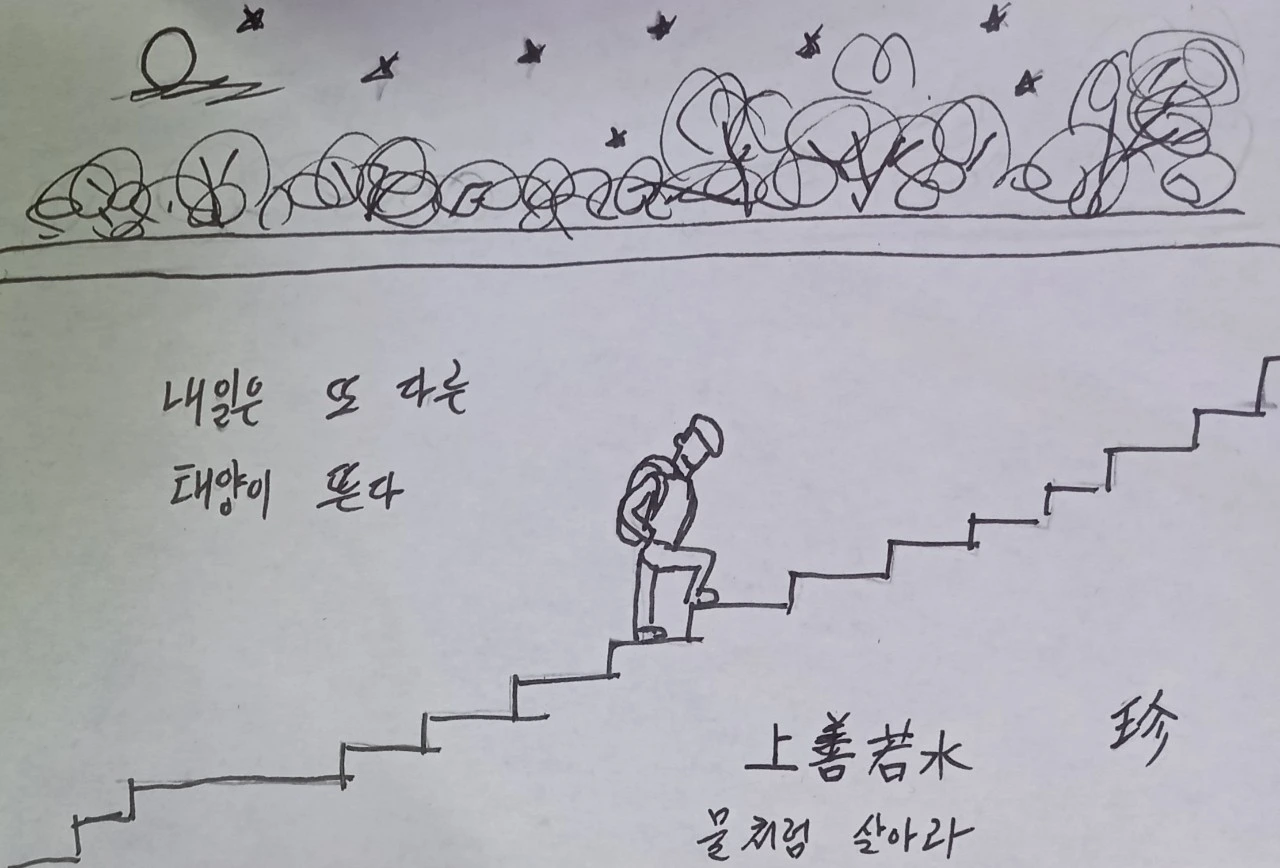 내일은 또 다른
태양이 뜬다
上善若水
珍
물처럼 살아라